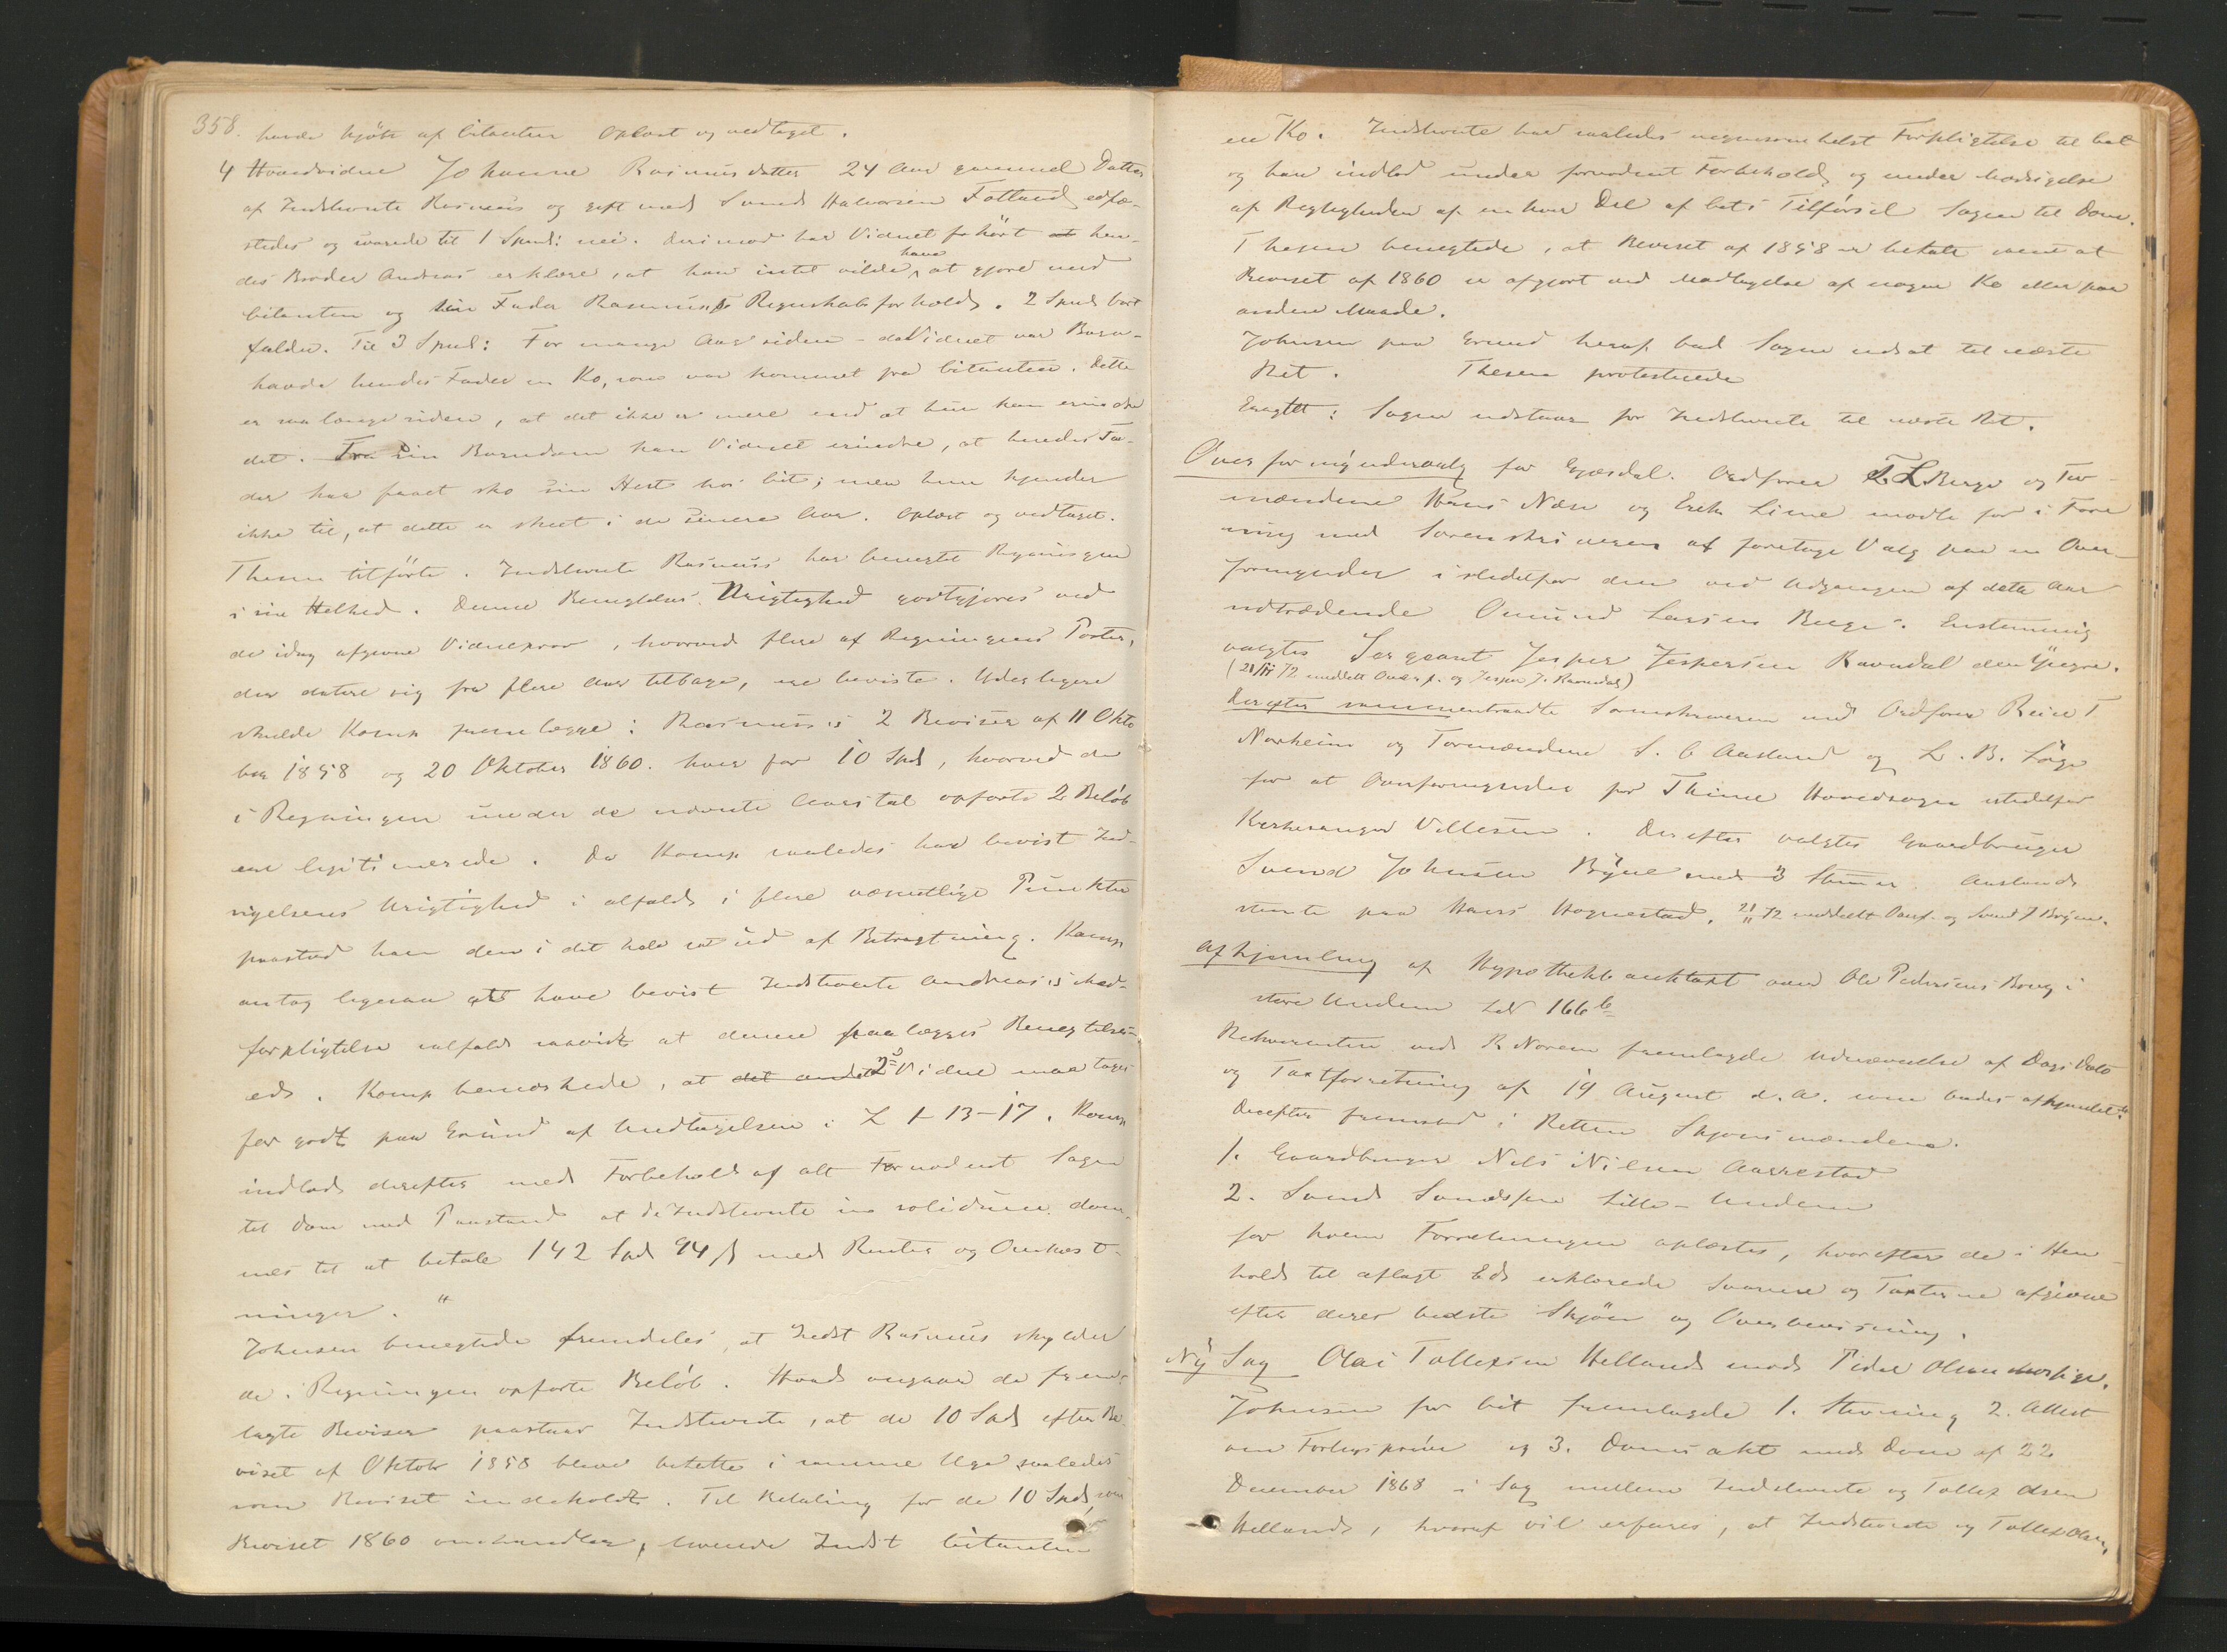 358. havde kjöbt af Citanten Oplæst og vedtaget.
4 Hovedvidne Johanne Rasmusdatter 24 Aar gammel Datter
af Indstevnte Rasmus og gift med Svend Halvorsen Fotland edfæ-
stedes og svarede til 1 Spml: nei. Derimod har Vidnet hört at hen-
des Broder Andreas erklære, at han intet vilde have at gjöre med
Citanten og sin Fader Rasmus's Regnskabsforhold. 2 Spml bort
falder. Til 3 Spml: For mange Aar siden - da Vidnet var Barn -
havde hendes Fader en Ko, som var kommet fra Citanten. Dette
er saa længe siden, at det ikke er mere end at hun kan erindre
det. Fra sin Barndom kan Vidnet erindre, at hendes Fa-
der har faaet sko sin Hest hos Cit; men hun kjender
ikke til, at dette er skeet i de senere Aar. Oplæst og vedtaget.
Thesen tilförte. Indstevnte Rasmus har benegtet Regningen
i sin Helhed. Denne Benegtelses Urigtighed godtgjöres ved
de idag afgivne Vidneprov, hvorved flere af Regningens Poster,
der datere sig fra flere Aar tilbage, ere beviste. Yderligere
skulde Komp fremlægge: Rasmus's 2 Beviser af 11 Okto
ber 1858 og 20 Oktober 1860. hver for 10 Spd, hvorved de
i Regningen under de nævnte Aarstal opförte 2 Belöb
ere legitimerede. Da Komp saaledes har bevist Ind-
sigelsens Urigtighed i alfald i flere væsentlige Punkter
paastod han den i det hele sat ud af Betragtning. Komp
antog ligesaa at have bevist Indstevnte Andreas's Med-
forpligtelse ialfald saavidt at denne paalægges Benegtelses-
ed. Komp bemærkede, at det andet 2det Vidne maa tages
for godt paa Grund af Undtagelsen i L 1-13-17. Komp
indlod derefter med Forbehold af alt Fornödent Sagen
til Dom med Paastand at de Indstevnte in solidum döm-
mes til at betale 142 Spd 94 ß med Renter og Omkost-
ninger."
Johnsen benegtede fremdeles, at Indst Rasmus skylder
de i Regningen opförte Belöb. Hvad angaar de frem-
lagte Beviser paastaar Indstevnte, at de 10 Spd efter Be
viset af Oktobr 1858 bleve betalte i samme Uge saaledes
som Beviset indeholdt. Til Betaling for de 10 Spd, som
Beviset 1860 omhandler, leverede Indst Citanten
en Ko. Indstevnte har saaledes ingensomhelst Forpligtelse til Cit
og han indlod under fornödent Forbehold og under Modsigelse
af Rigtigheden af enhver Del af Cit's Tilförsel Sagen til Dom.
Thesen benegtede, at Beviset af 1858 er betalt samt at
Beviset af 1860 er afgjort ved Modtagelse af nogen Ko eller paa
anden Maade.
Johnsen paa Grund heraf bad Sagen udsat til næste
Ret. Thesen protesterede
Eragtet: Sagen udstaar for Indstevnte til næste Ret.
Overformyndervalg for Gjesdal. Ordförer T L Berge og For-
mændene Hans Næse og Erik Lime mödte for i Fore
ning med Sorenskriveren at foretage Valg paa en Over-
formynder istedetfor den ved Udgangen af dette Aar
udtrædende Omund Larsen Berge. Enstemmig
valgtes Sergeant Jesper Jespersen Ravndal den Yngre.
(21/11 72 meddelt Overf. og Jesper J. Ravndal)
Derefter sammentraadte Sorenskriveren med Ordförer Reier T
Norheim og Formændene S. C Aasland og L. B. Löge
for at Overformynder for Thime Hovedsogn istedetfor
Kirkesanger Vellesen. Derefter valgtes Gaardbruger
Svend Johnsen Bryne med 3 Stemmer. Aasland
stemte paa Hans Hognestad. 21/11 72 meddelt Overf. og Svend J Bryne.
Afhjemling af Hypothekbanktaxt over Ole Pedersens Brug i
store Undem LN 166 b
Rekvirenten ved R. Norem fremlagde Udnævnelse af Dags Dato
og Taxtforretning af 19 August d.A. som bades afhjemlet.
Derefter fremstod i Retten Skjönsmændene.
1. Gaardbruger Nels Nilsen Aarrestad
2. Svend Svendsen Lille-Undem
for hvem Forretningen oplæstes, hvorefter de i Hen-
hold til aflagt Ed erklærede Svarene og Taxterne afgivne
efter deres bedste Skjön og Overbevisning.
Ny Sag Olai Tollefsen Helland mod Peder Olsen
Johnsen for Cit fremlagde 1. Stevning 2. Attest
om Forligspröve og 3. Domsakt med Dom af 22
December 1868 i Sag mellem Indstevnte og Tollef Olsen
Helland, hvoraf vil erfares, at Indstevnte og Tollef Olsen,